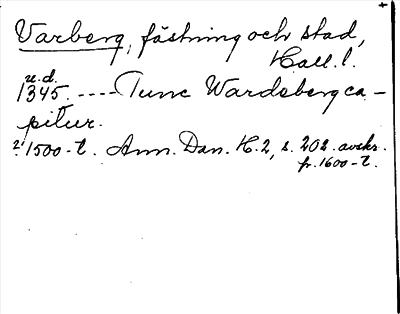 Varberg, fästning och stad,
Hall. l.
u.d.
1345. ---- Tunc Wardsberg ca-
pitur.
2/1500-t. Ann. Dan. H. 2, s. 202. avskr.
fr. 1600-t.